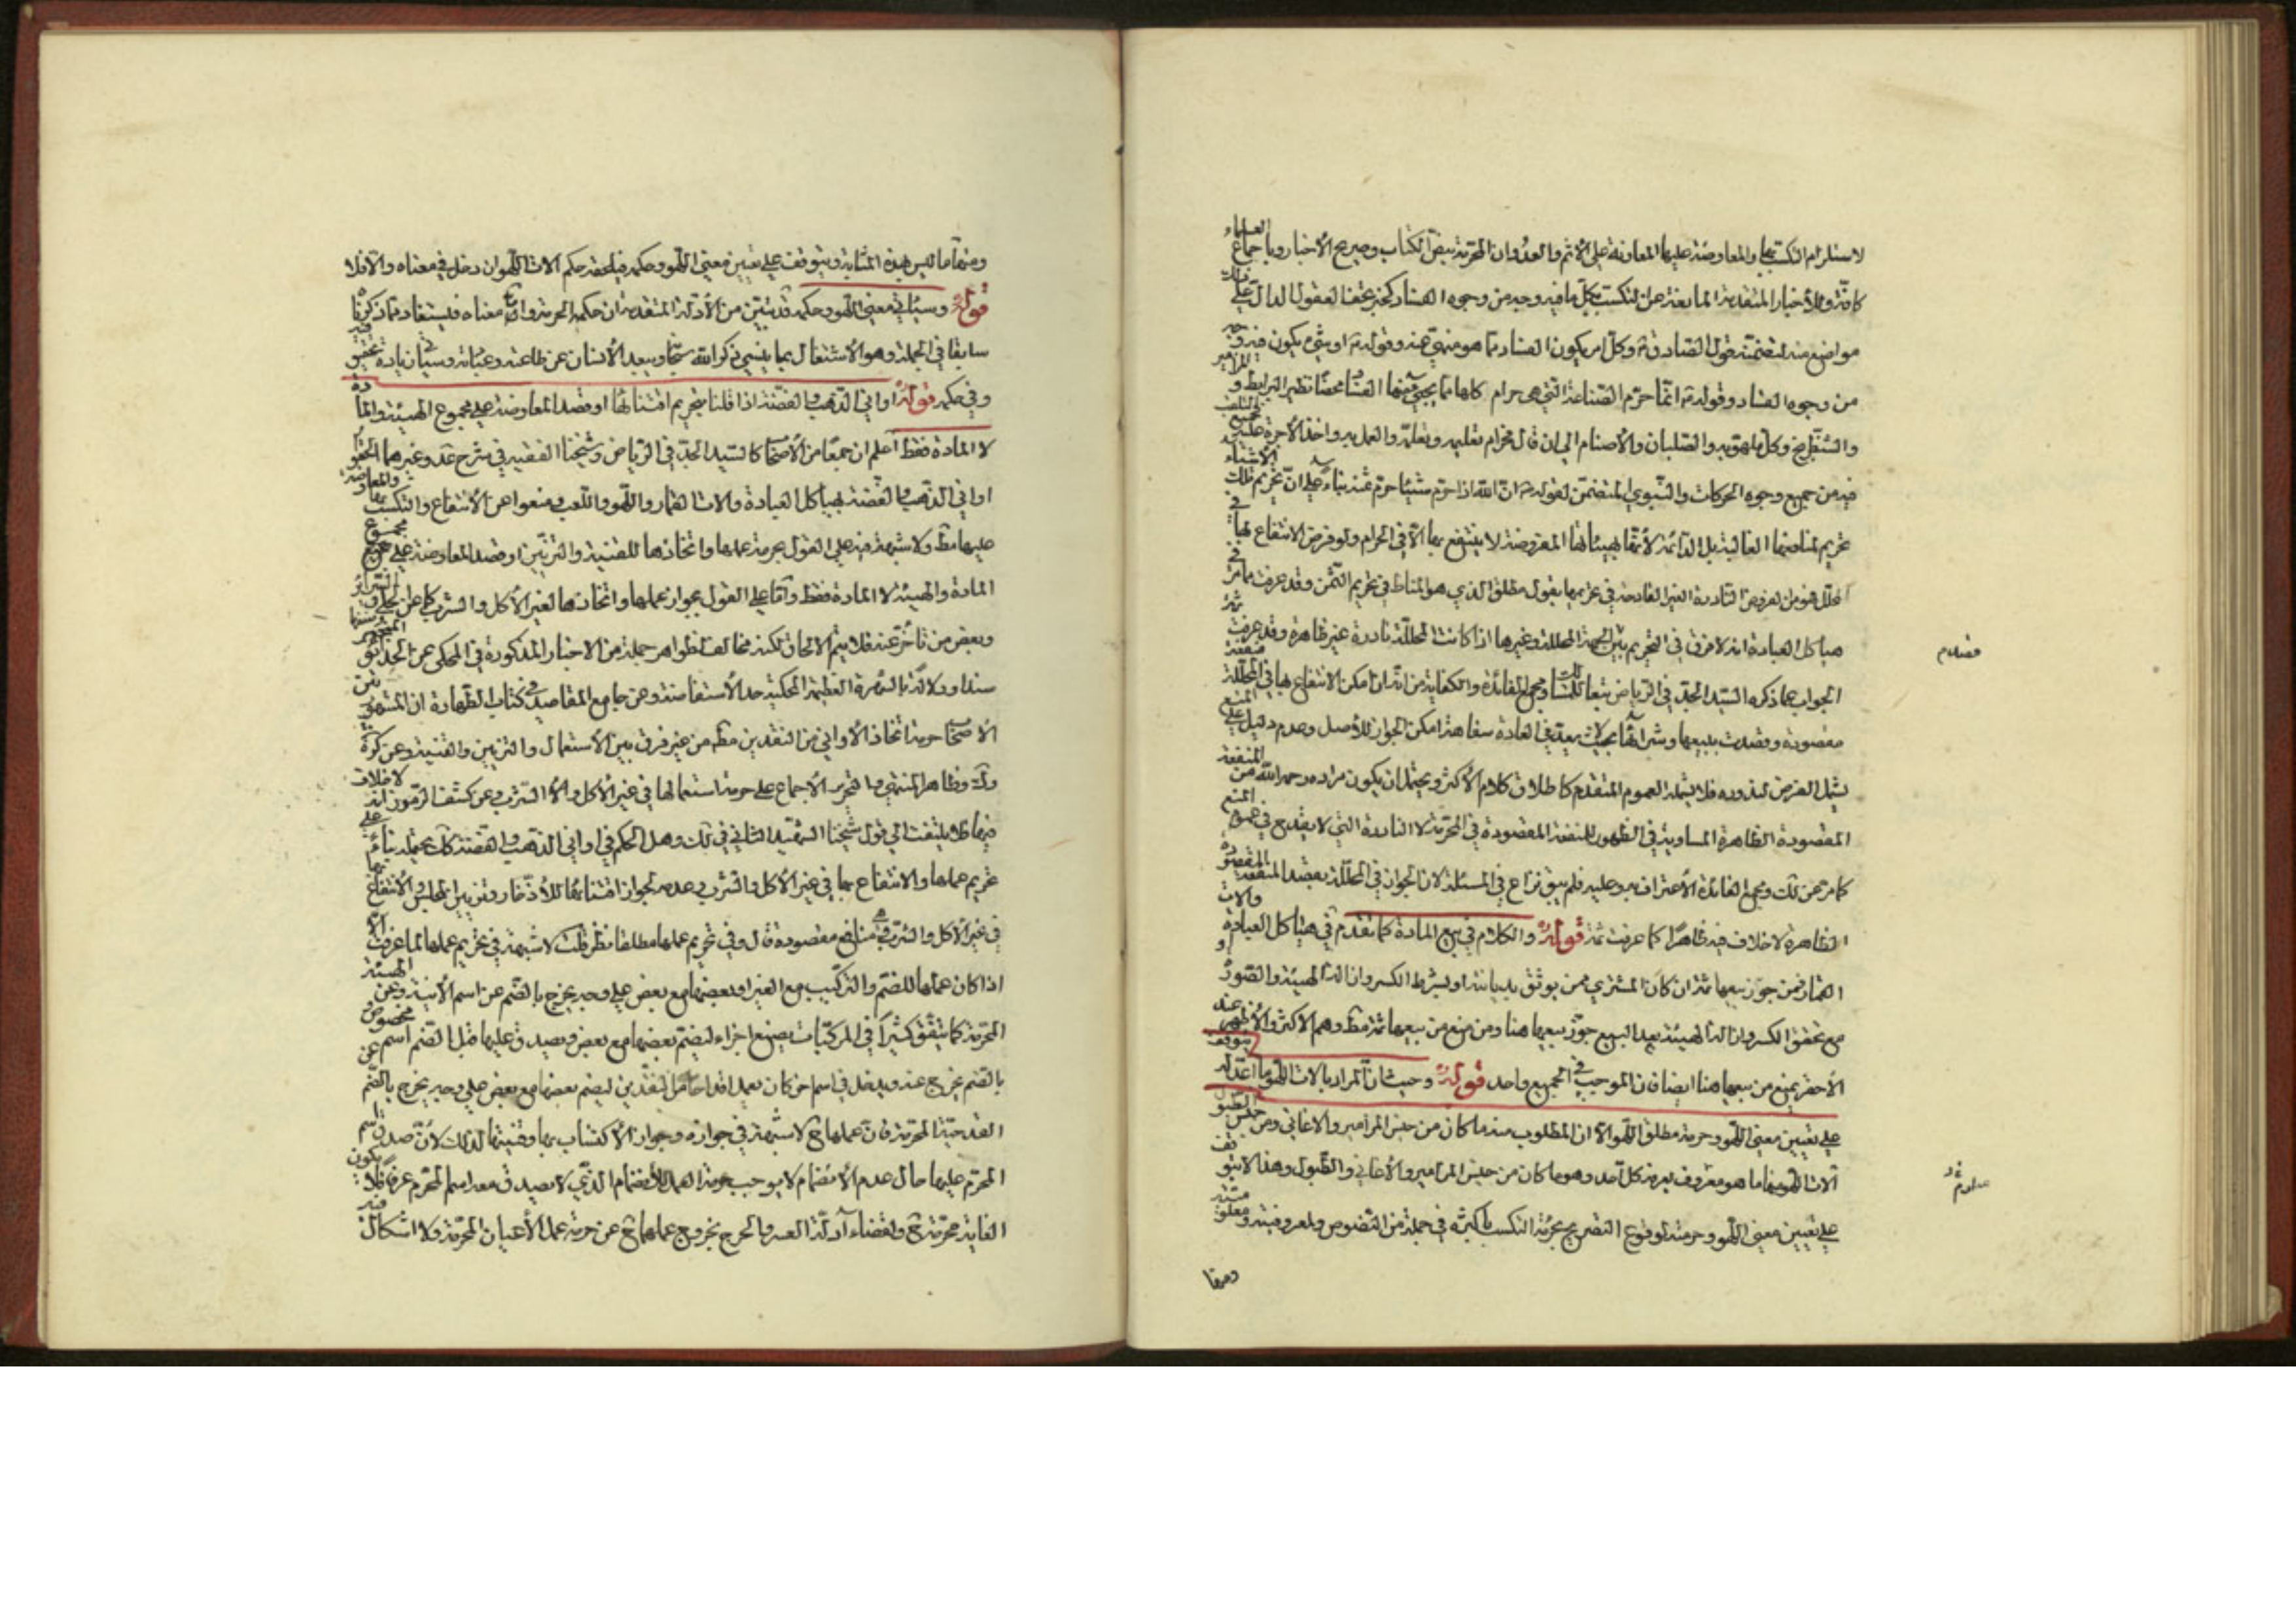 لاستلزام التكسب بها والمعاوضة عليها المعاونة على الاثم والعدوان المحرمة بنص الكتاب وصريح الأخبار وباجماع العلماء
كافة وللأخبار المتقدمة المانعة عن التكسب بكل ما فيه وجه من وجوه الفساد كخبر تحف العقول الدال على ذلك
مواضع منه لتضمنه قول الصادق ع وكل امر يكون الفساد مما هو منهي عنه وقوله ع او شئ يكون فيه وجه
من وجوه الفساد وقوله ع انما حرم الصناعة التي هي حرام كلها مما يجئ منها الفساد محضا نظير البرابط والمزامير
والشطرنج وكل ملهو به والصلبان والأصنام الى ان قال فحرام تعليمه وتعلمه والعمل به واخذ الأجرة عليه وجميع التقلب
فيه من جميع وجوه الحركات والنبوي المتضمن لقوله ع ان الله اذا حرم شيئا حرم ثمنه بناء على ان تحريم تلك الأشياء
تحريم لمنافعها الغالبة بل الدائمة لأنها بهيئاتها المفروضة لا ينتفع بها الا في الحرام ولو فرض الانتفاع بها في
المحلل فهو من الفروض النادرة الغير القادحة في تحريمها بقول مطلق الذي هو المناط في تحريم الثمن وقد عرفت مما مر في
هياكل العبادة انه لا فرق في التحريم بين الجهة المحللة وغيرها اذا كانت المحللة نادرة غير ظاهرة وقد عرفت ثمة
الجواب عما ذكره السيد الجد في الرياض تبعا للمسالك ومجمع الفائدة والكفاية من انه ان امكن الانتفاع بها في المحللة منفعة
مقصودة وقصدت ببيعها وشرائها بحيث لا يعد في العادة سفاهة امكن الجواز للأصل وعدم دليل على المنع
يشمل الفرض لندوره فلا يشمله العموم المتقدم كاطلاق كلام الأكثر ويحتمل ان يكون مراده رحمه الله من المنفعة
المقصودة الظاهرة المساوية في الظهور للمنفعة المقصودة في المحرمة لا النادرة التي لا يقدح في عموم المنع
كما مر عن لك ومجمع الفائدة الأعتراف به وعليه فلم يبق نزاع في المسئلة لان الجواز في المحللة بقصد المنفعة المقصودة
الظاهرة لا خلاف فيه ظاهرا كما عرفت ثمة قوله والكلام في بيع المادة كما تقدم في هياكل العبادة والات
القمار فمن جوز بيعها ثمة ان كان المشتري ممن يوثق بديانته او يشرط الكسر وازالة الهيئة والصورة او
مع تحقق الكسر وازالة الهيئة بعد البيع جوز بيعها هنا ومن منع من بيعها ثمة مط وهم الاكثر والأظهر عند
الأحقر يمنع من بيعها هنا ايضا فان الموجب في الجميع واحد قوله وحيث ان المراد بالات اللهو ما اعد له توقف
على تعيين معنى اللهو وحرمة مطلق اللهو الا ان المطلوب منه ما كان من جنس المزامير والاغاني ومن جنس الطبول
آلات اللهو منها ما هو معروف يعرفه كل احد وهو ما كان من جنس المزامير والأغاني والطبول وهذا لا يتوقف
على تعيين معنى اللهو وحرمته لوقوع التصريح بحرمة التكسب باكثره في جملة من النصوص ولمعروفيته ومعلوميته
ومنها
ومنها ما ليس بهذه المثابة ويتوقف على تعيين معنى اللهو وحكمه فيلحقه حكم الات اللهو ان دخل في معناه والا فلا
قوله وسيأتي معنى اللهو وحكمه قد تبين من الأدلة المتقدمة ان حكمه الحرمة واما معناه فليستفاد مما ذكرنا
سابقا في الجملة وهو الأشتغال بما ينسي ذكر الله سبحانه ويبعد الأنسان عن طاعته وعبادته وسيأتي زيادة تحقيق فيه
وفي حكمه قوله اواني الذهب والفضة اذا قلنا بتحريم اقتنائها او قصد المعاوضة على مجموع الهيئة والمادة
لا المادة فقط اعلم ان جمعا من الأصحاب كالسيد الجد في الرياض وشيخنا الفقيه في شرح عد وغيرهما الحقوا
اواني الذهب والفضة بهياكل العبادة والات القمار واللهو واللعب ومنعوا عن الأنتفاع والتكسب بها والمعاوضة
عليها مط ولا شبهة فيه على القول بحرمة عملها واتخاذها للقنية والتزيين او قصد المعاوضة على مجموع
المادة والهيئة لا المادة فقط واما على القول بجواز عملها واتخاذها لغير الأكل والشرب كما عن الحلي والسرائر
وبعض من تأخر عنه فلا يتم الالحاق لكنه مخالف لظواهر جملة من الاخبار المذكورة في المحكي عن الحدائق
سندا ودلالة بالشهرة العظيمة المحكية حد الأستفاضة وعن جامع المقاصد في كتاب الطهارة ان المشهور بين
الأصحاب حرمة اتخاذ الأواني من النقدين مط من غير فرق بين الأستعمال والتزيين والقنية وعن كره
ولك وظاهر المنتهى والتحرير الأجماع على حرمة استعمالها في غير الأكل والشرب وعن كشف الرموز انه لا خلاف
فيها فلا يلتفت الى قول شيخنا الشهيد الثاني في لك وهل الحكم في اواني الذهب والفضة كك يحتمله بناء على
تحريم عملها والانتفاع بها في غير الأكل والشرب وعدمه لجواز اقتنائها للأدخار وتزيين المجالس والأنتفاع بها
في غير الأكل والشرب وهي منافع مقصودة قال وفي تحريم عملها مطلقا نظر قلت لا شبهة في تحريم عملها لما عرفت الا
اذا كان عملها للضم والتركيب مع الغير او بعضها مع بعض على وجه يخرج بالضم عن اسم الأنية وعن الهيئة
المحرمة كما يتفق كثيرا في المركبات يصنع اجزاء ليضم بعضها مع بعض ويصدق عليها قبل الضم اسم مخصوص
بالضم يخرج عنه ويدخل في اسم اخر كان يعمل اقداحا من النقدين ليضم بعضها مع بعض على وجه يخرج بالضم عن
القدحية المحرمة فان عملها ح لا شبهة في جوازه وجواز الأكتساب بها وقنيتها لذلك لأن صدق اسم
المحرم عليها حال عدم الأنضمام لا يوجب حرمة العمل للأنضمام الذي لا يصدق معه اسم المحرم عرفا فلا يكون
الغاية محرمة ح ولقضاء ادلة العسر والحرج بخروج عملها ح عن حرمة عمل الأعيان المحرمة ولا اشكال فيه